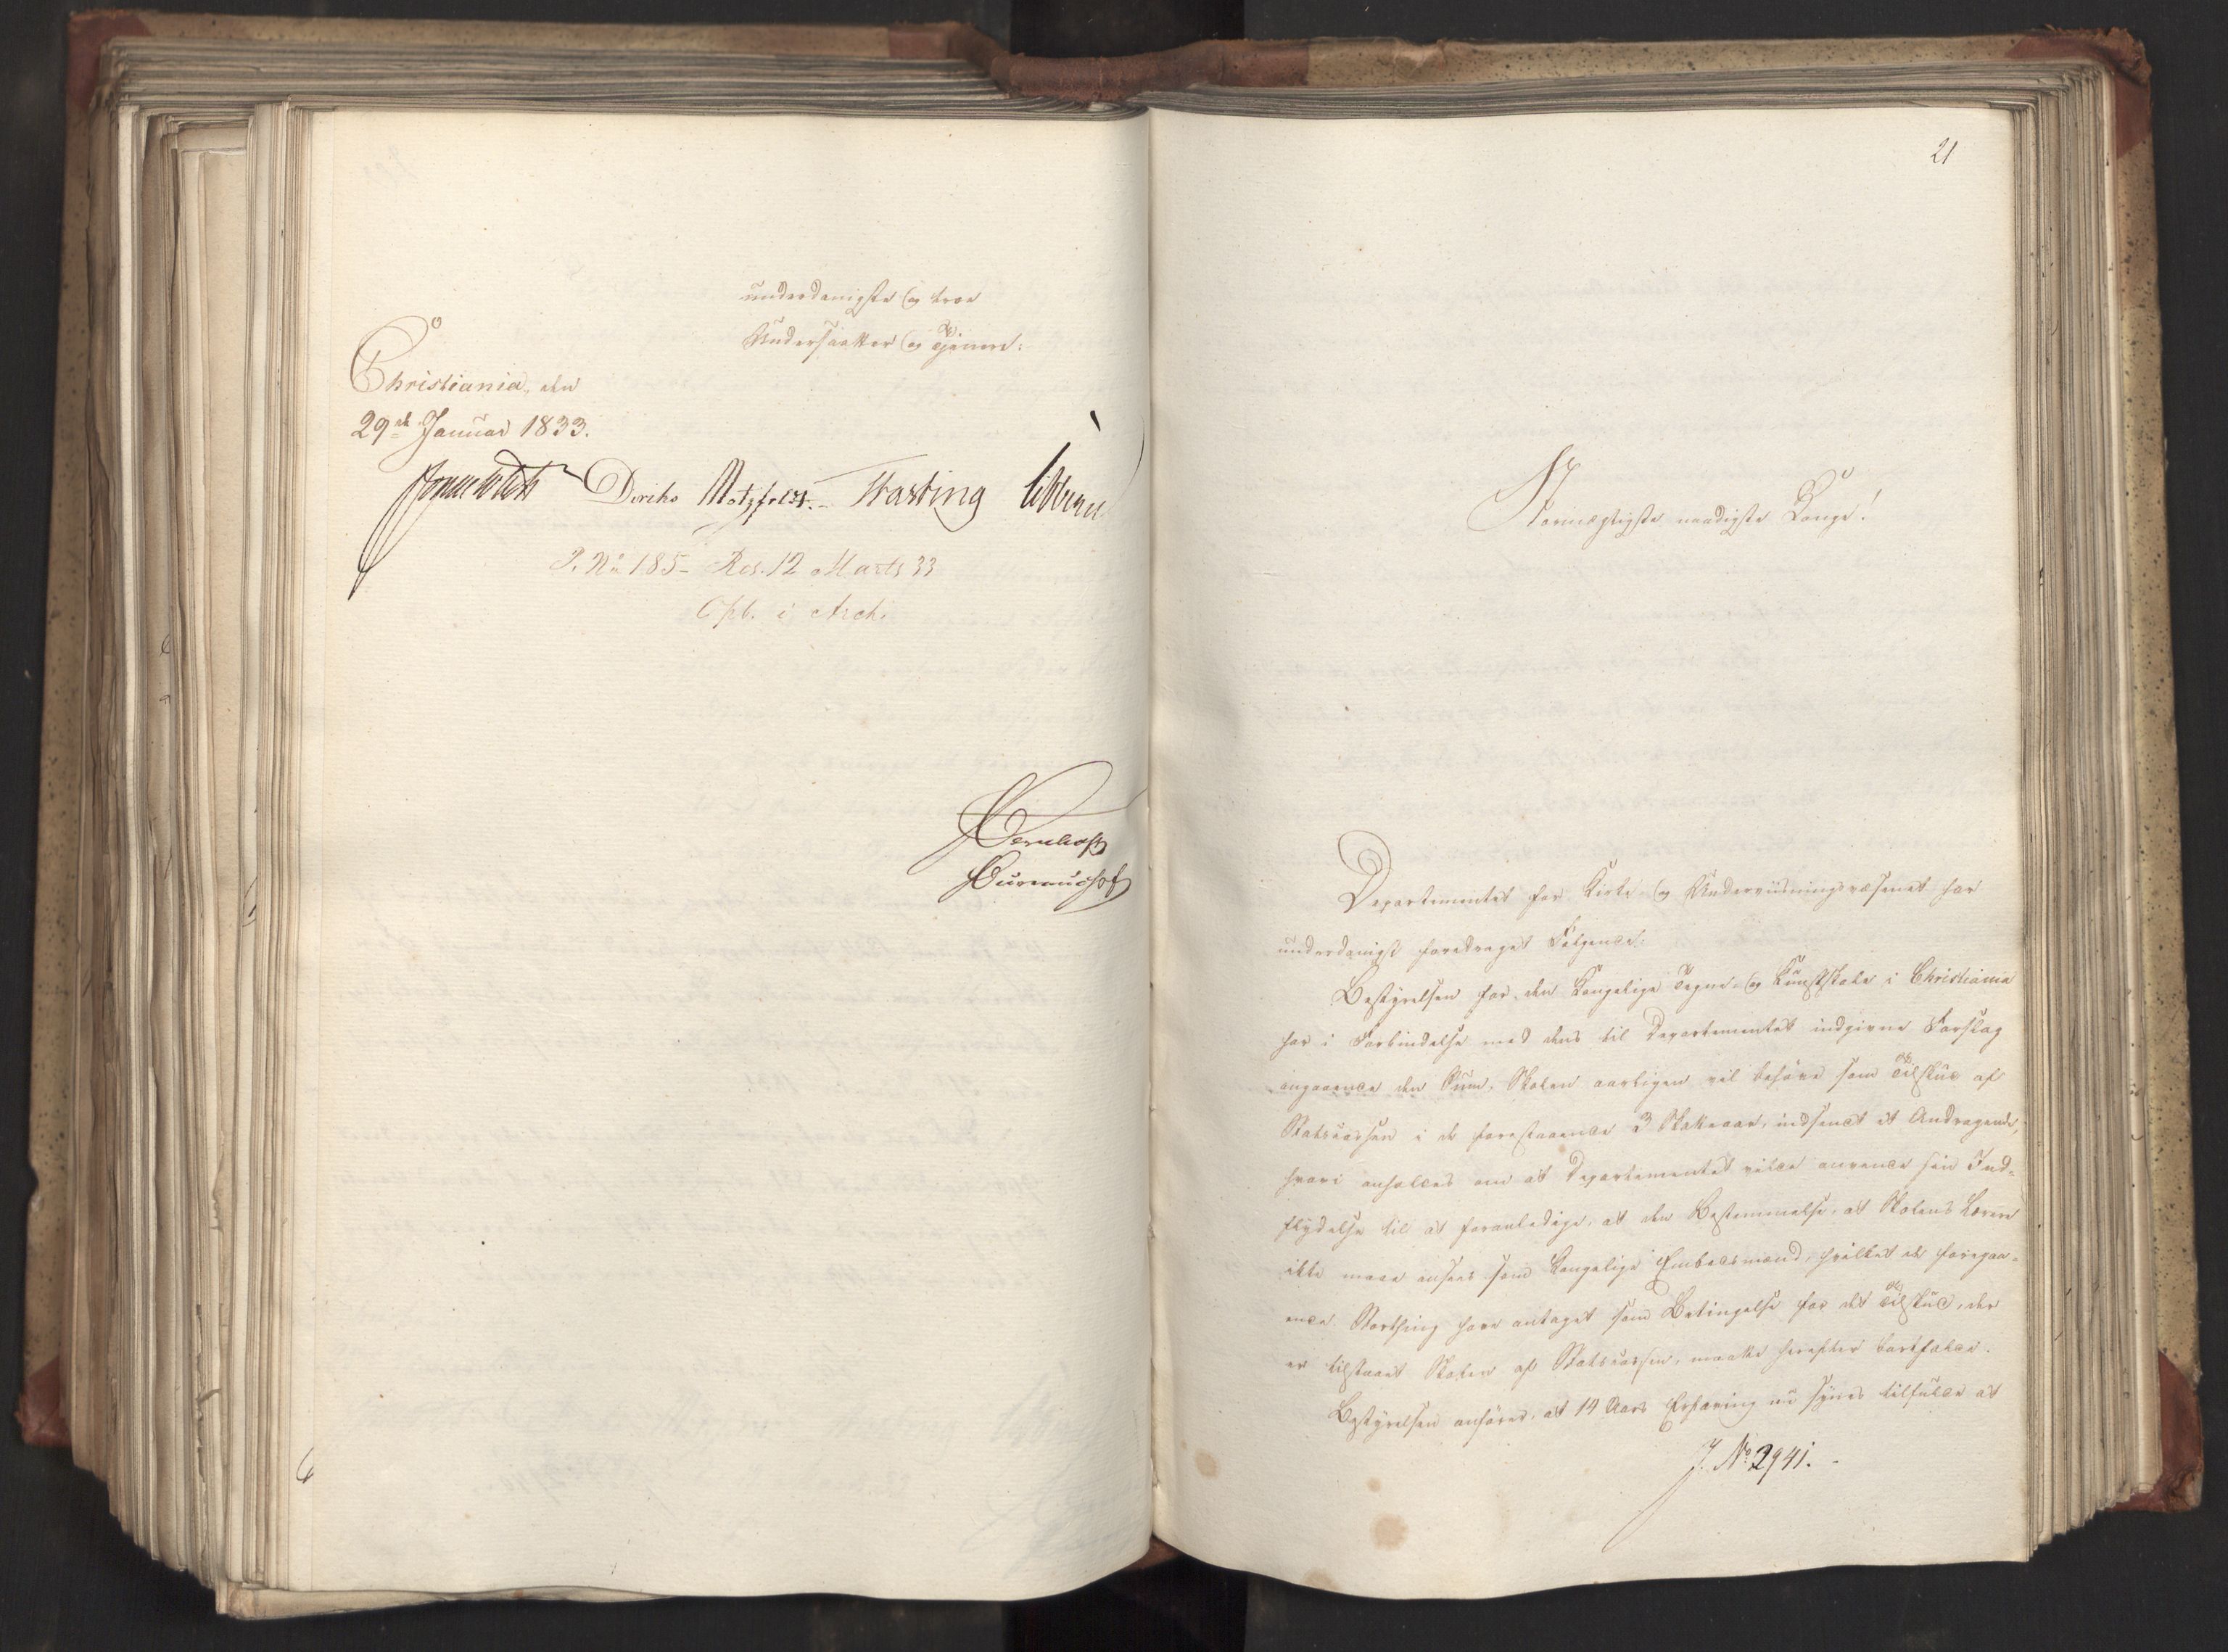 underdanigste og troe
Undersaatter og Tjenere:
Christiania, den
29de Januar 1833.
Diriks Motzfeldt. Fasting
P. No 185 - Res. 12 Marts 33
Opb. i Arch.
21
Stormægtigste naadigste Konge!
Departementet for Kirke- og Underviisningsvæsenet har
underdanigst foredraget Følgende:
Bestyrelsen for den Kongelige Tegne- og Kunstskole i Christiania
har i Forbindelse med dens til Departementet indgivne Forslag
angaaende den Sum, Skolen aarligen vil behøve som Tilskud af
Statscassen i de forestaaende 3 Skatteaar, indsendt et Andragende,
hvori anholdes om at Departementet vilde anvende sin Ind-
flydelse til at foranledige, at den Bestemmelse, at Skolens Lærere
ikke maae ansees som Kongelige Embedsmænd, hvilket de foregaa-
ende Storthing have antaget som Betingelse for det Tilskud, der
er tilstaaet Skolen af Statscassen, maatte herefter bortfalde.
Bestyrelsen anfører, at 14 Aars Erfaring nu synes tilfulde at
J. No 2941.